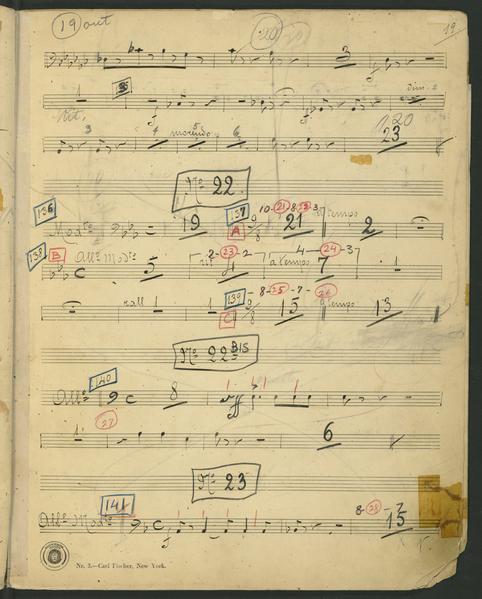 19 out 19
3
1 dim.
rit. 120
3 4 morendo 5 6 23
No. 22
136 137 10-21-8 3 a tempo
Modto 19 A 9/8 21 2
138 B Allo Modto 2-23-2 4-24-3
C 5 rit 4 a tempo 7 1
139 8-25-7-26 a tempo
rall 1 1 C 9/8 15 13
No. 22 BIS
140
Allo C 8 ff
27
1 6
No. 23
141 8-28-7
Allo Modto C f 15
Nr. 3.—Carl Fischer, New York.